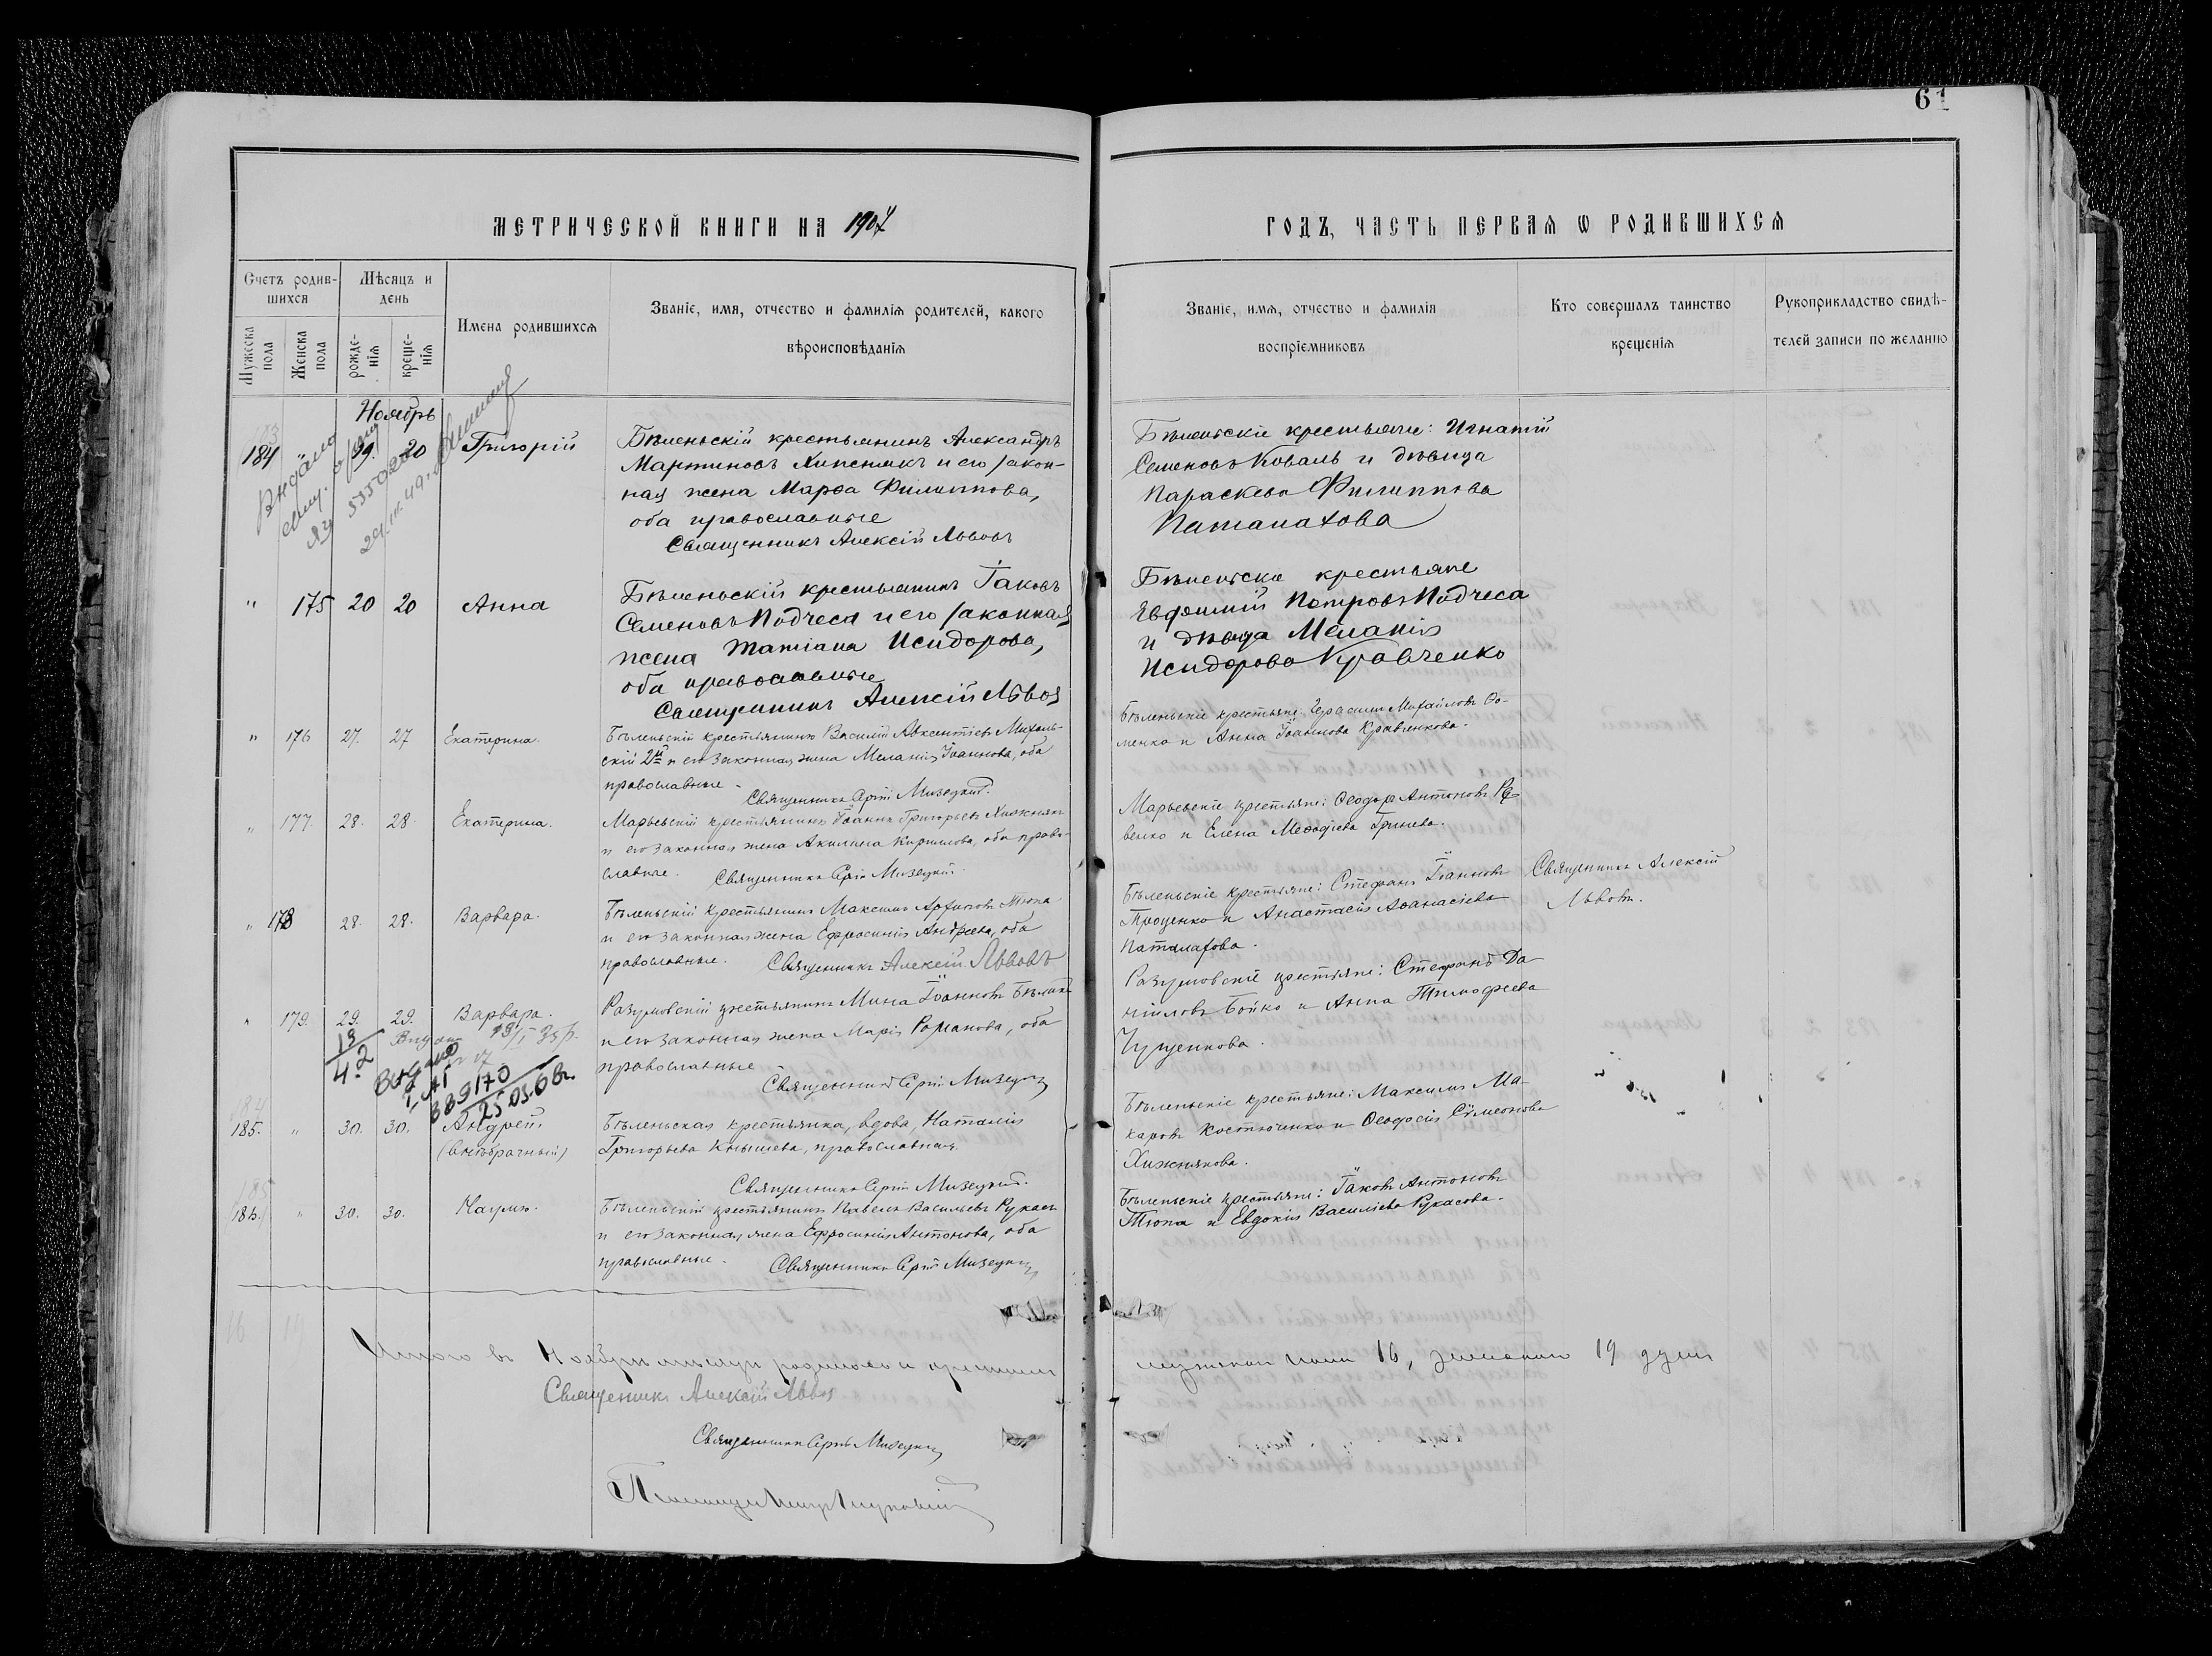 61
МЕТРИЧЕСКОЙ КНИГИ НА 1907
ГОДЪ, ЧАСТЬ ПЕРВАЯ Ѡ РОДИВШИХСЯ
Счетъ родив-
шихся
Мужеска
пола
Женска
пола
Мѣсяцъ и
день
рожде-
нія
креще-
нія
Имена родившихся
Званіе, имя, отчество и фамилія родителей, какого
вѣроисповѣданія
Званіе, имя, отчество и фамилія
воспріемниковъ
Кто совершалъ таинство
крещенія
Рукоприкладство свидѣ-
телей записи по желанію
Ноябрь
184 " 19. 20 Григорій
Бѣленьскій крестьянинъ Александръ
Мартиновъ Хипснякъ и его закон-
ная жена Марѳа Филиппова,
оба православные
Священникъ Алексій Львовъ
Бѣленьскіе крестьяне: Игнатій
Семеновъ Коваль и дѣвица
Параскева Филиппова
Паталахова
" 175 20 20 Анна
Бѣленьскій крестьянинъ Іаковъ
Семеновъ Подчеса и его законная
жена Татіана Исидорова,
оба православные
Священникъ Алексій Львовъ
Бѣленьскіе крестьяне
Евфимій Петровъ Подчеса
и дѣвица Меланія
Исидорова Кравченко
" 176 27. 27 Екатерина.
Бѣленьскій крестьянинъ Василій Авксентіевъ Михаль-
скій 2й и его законная жена Меланія Іоаннова, оба
православные.
Священникъ Сергій Мизецкій.
Бѣленьскіе крестьяне: Герасимъ Михайловъ Фо-
менко и Анна Іоаннова Кравченкова.
" 177. 28. 28 Екатерина.
Марьевскій крестьянинъ Іоаннъ Григорьевъ Хижнякъ
и его законная жена Акилина Кириллова, оба право-
славные. Священникъ Сергій Мизецкій.
Марьевскіе крестьяне: Ѳеодоръ Антоновъ Ре-
венко и Елена Меѳодіева Гринева.
" 178 28. 28. Варвара.
Бѣленьскій крестьянинъ Максимъ Архиповъ Тюпа
и его законная жена Ефросинія Андреева, оба
православные. Священникъ Алексій Львовъ
Бѣленьскіе крестьяне: Стефанъ Іоанновъ
Троценко и Анастасія Аѳанасіева
Паталахова.
Священникъ Алексій
Львовъ.
" 179. 29. 29. Варвара.
Разумовскій крестьянинъ Мина Іоанновъ
и его законная жена Марія Романова, оба
православные
Священникъ Сергій Мизецкій
Разумовскіе крестьяне: Стефанъ Да-
ніиловъ Бойко и Анна Тимоѳеева
185. " 30. 30. Андрей.
(внебрачный)
Бѣленьская крестьянка, вдова, Наталія
Григорьева Кнышева, православная.
Священникъ Сергій Мизецкій.
Бѣленьскіе крестьяне: Максимъ Ма-
каровъ Костюченко и Ѳеодосія Сѵмеонова
Хижнякова.
186. " 30. 30. Наумъ.
Бѣленьскій крестьянинъ Павелъ Васильевъ Рукасъ
и его законная жена Ефросинія Антонова, оба
православные. Священникъ Сергій Мизецкій
Бѣленьскіе крестьяне: Іаковъ Антоновъ
Тюпа и Евдокія Василіева Рукасова.
16 19
Итого въ Ноябрѣ мѣсяцѣ родилось и крещено
мужескаго пола 16, женскаго 19 душъ
Священникъ Алексій Львовъ
Священникъ Сергій Мизецкій